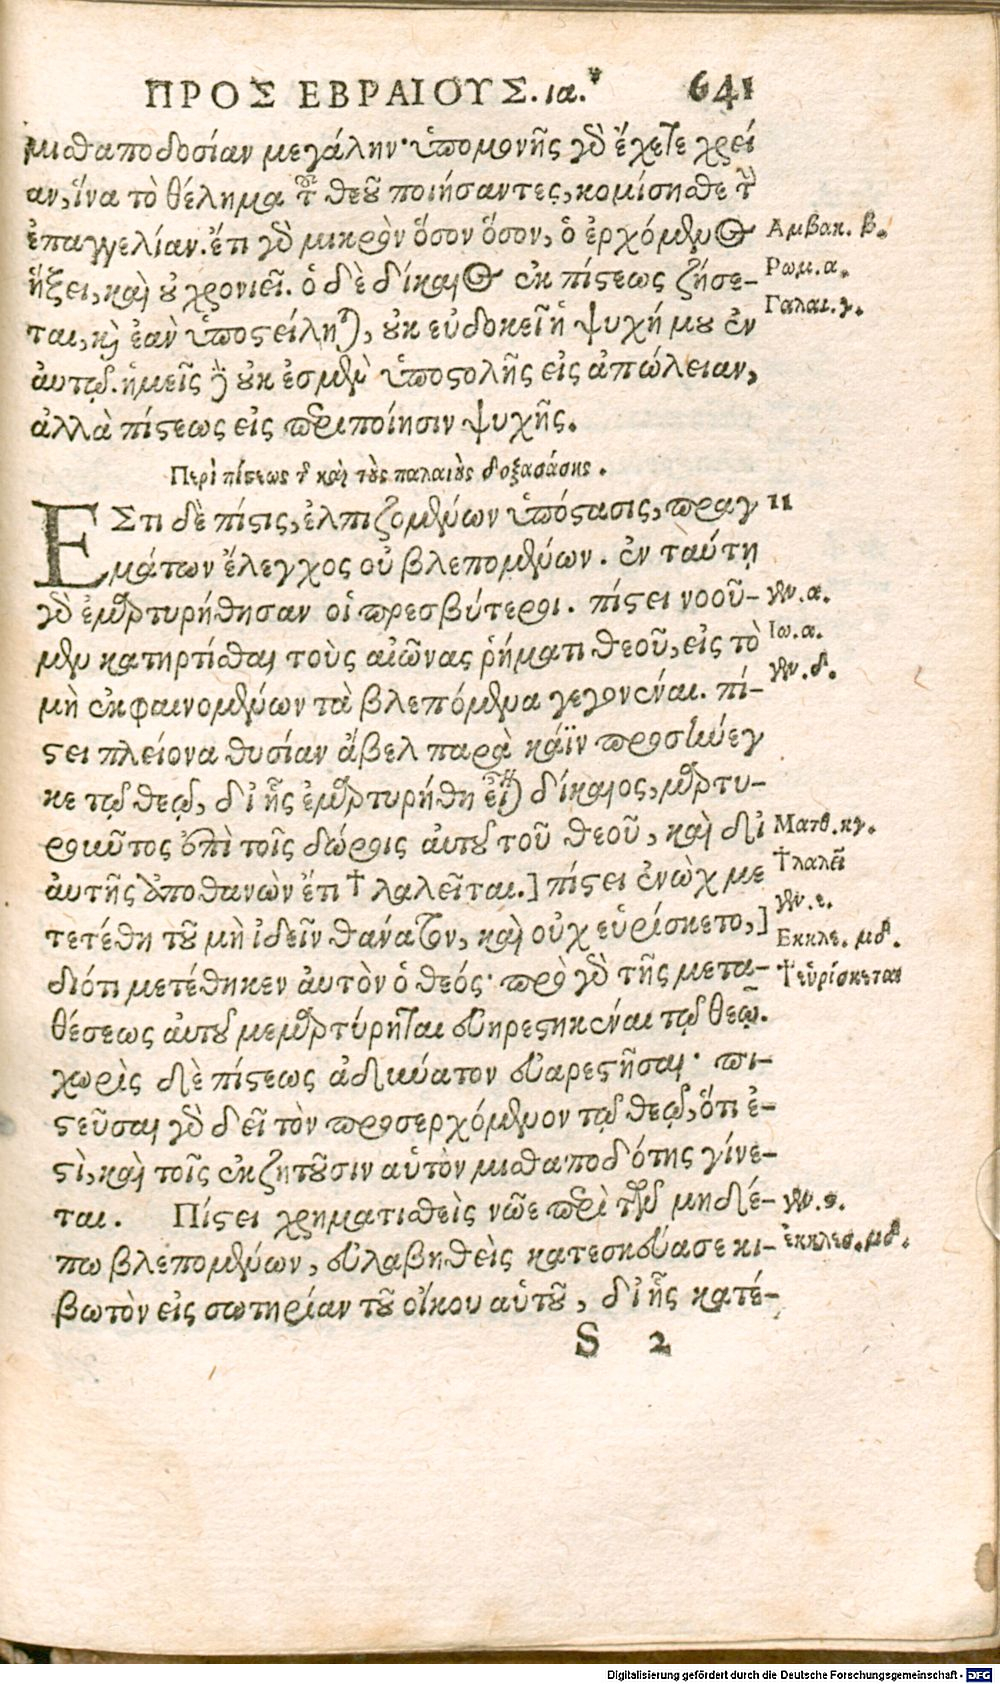 ΠΡΟΣ ΕΒΡΑΙΟΥΣ. ια. 641
μισθαποδοσίαν μεγάλην· ὑπομονῆς γὰρ ἔχετε χρεί
αν, ἵνα τὸ θέλημα τοῦ θεοῦ ποιήσαντες, κομίσησθε τὴν
ἐπαγγελίαν. ἔτι γὰρ μικρὸν ὅσον ὅσον, ὁ ἐρχόμενος
Αμβακ. β.
ἥξει, καὶ οὐ χρονιεῖ. ὁ δὲ δίκαιος ἐκ πίστεως ζήσε-
Ρωμ. α.
Γαλατ. γ.
ται, καὶ ἐὰν ὑποστείληται, οὐκ εὐδοκεῖ ἡ ψυχή μου ἐν
ἀυτῷ. ἡμεῖς δὲ οὐκ ἐσμὲν ὑποστολῆς εἰς ἀπώλειαν,
ἀλλὰ πίστεως εἰς περιποίησιν ψυχῆς.
Περὶ πίστεως τῆς καὶ τοὺς παλαιοὺς δοξασάσης.
ΕΣτι δὲ πίστις, ἐλπιζομένων ὑπόστασις, πραγ
11
μάτων ἔλεγχος οὐ βλεπομένων. ἐν ταύτῃ
γὰρ ἐμαρτυρήθησαν οἱ πρεσβύτεροι. πίστει νοοῦ-
γεν. α.
μεν κατηρτίσθαι τοὺς αἰῶνας ῥήματι θεοῦ, εἰς τὸ
Ιω. α.
μὴ ἐκ φαινομένων τὰ βλεπόμενα γεγονέναι. πί-
γεν. δ.
στει πλείονα θυσίαν ἄβελ παρὰ κάϊν προσήνεγ
κε τῷ θεῷ, δι ἧς ἐμαρτυρήθη εἶναι δίκαιος, μαρτυ-
ροῦντος ἐπὶ τοῖς δώροις ἀυτοῦ τοῦ θεοῦ, καὶ δι
Ματθ. κγ.
ἀυτῆς ἀποθανὼν ἔτι † λαλεῖται.] πίστει ἐνὼχ με
† λαλεῖ
γεν. ε.
τετέθη τοῦ μὴ ἰδεῖν θάνατον, καὶ οὐχ εὑρίσκετο,]
Εκκλε. μδ.
διότι μετέθηκεν ἀυτὸν ὁ θεός· πρὸ γὰρ τῆς μετα-
† εὑρίσκεται
θέσεως ἀυτοῦ μεμαρτύρηται εὐηρεστηκέναι τῷ θεῷ.
χωρὶς δὲ πίστεως ἀδύνατον εὐαρεστῆσαι· πι-
στεῦσαι γὰρ δεῖ τὸν προσερχόμενον τῷ θεῷ, ὅτι ἐ-
στὶ, καὶ τοῖς ἐκζητοῦσιν αὐτὸν μισθαποδότης γίνε-
ται. Πίστει χρηματισθεὶς νῶε περὶ τῶν μηδέ-
γεν. ϛ.
πω βλεπομένων, εὐλαβηθεὶς κατεσκεύασε κι-
ἐκκλεσ. μδ.
βωτὸν εἰς σωτηρίαν τοῦ οἴκου αὑτοῦ, δι ἧς κατέ-
S 2
Digitalisierung gefördert durch die Deutsche Forschungsgemeinschaft - DFG